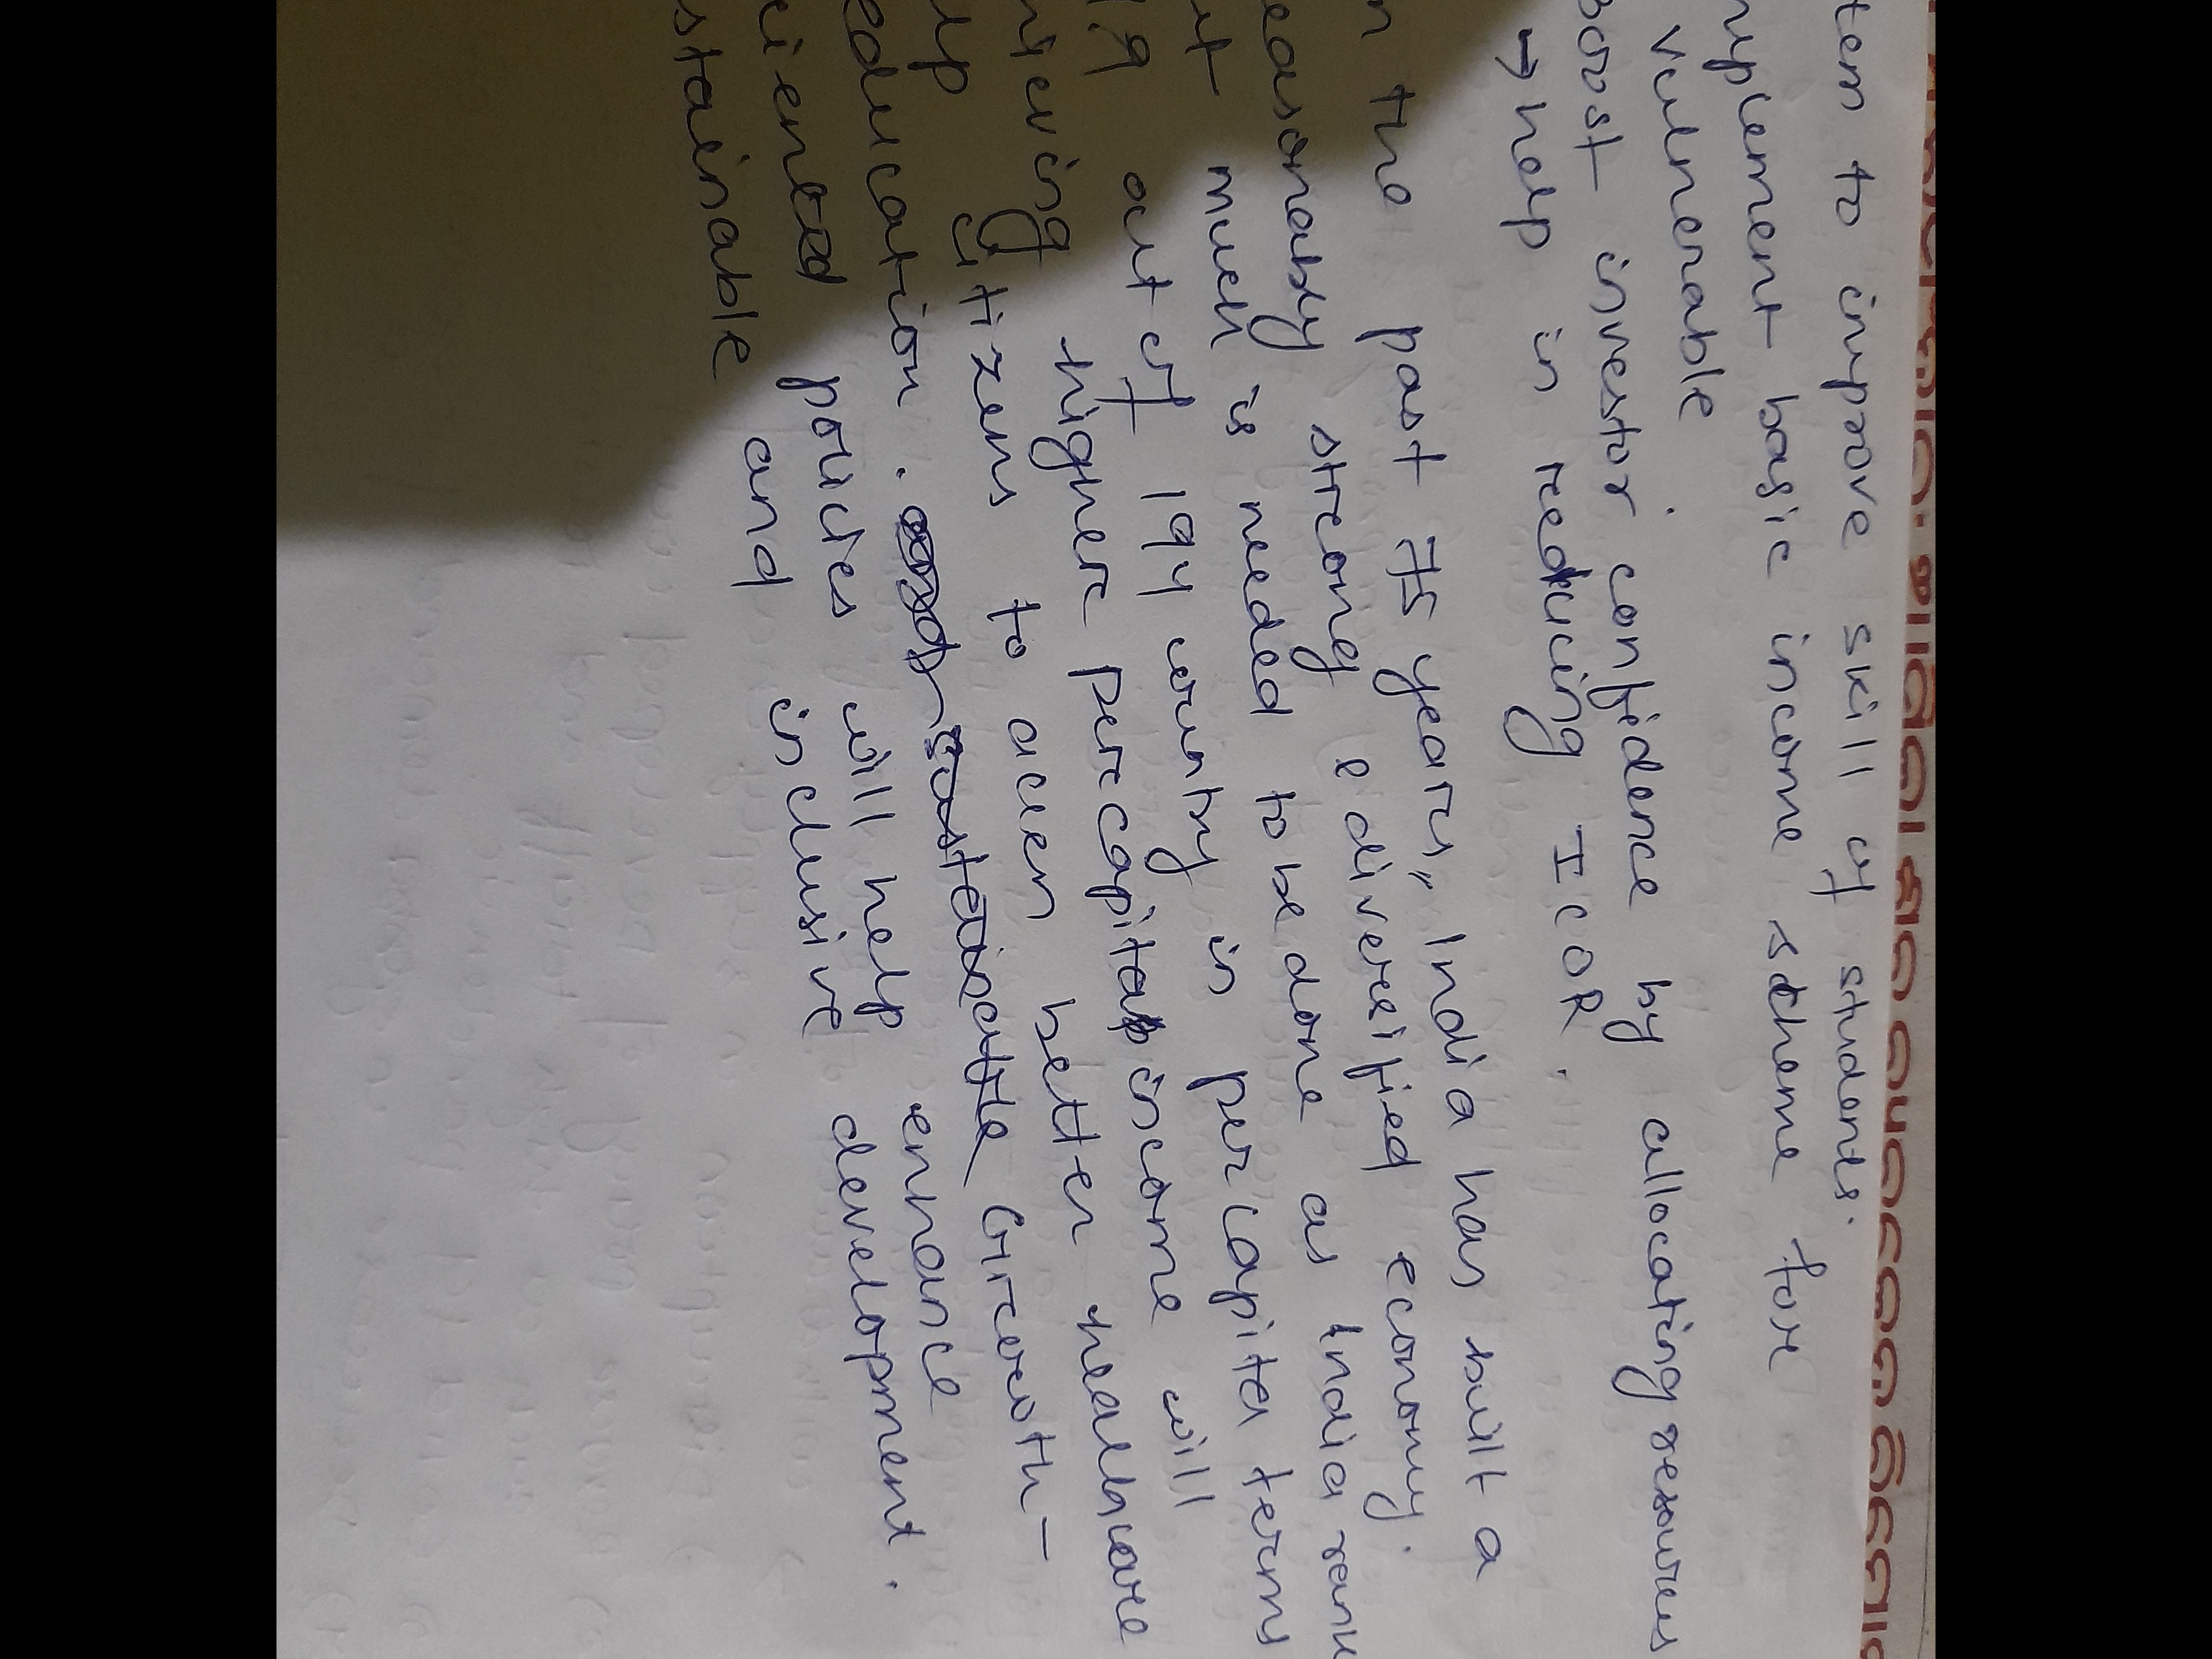 tem to improve skill of students.
mplement basic income scheme for
vulnerable
Boost investor confidence by allocating resources
→ help in reducing ICOR.
n the past 75 years, India has built a
easonably strong & diversified economy.
ut much is needed to be done as India rank
1.9 out of 194 country in per capita terms
hieving higher per capita income will
lp citizens to acess better healthcare
education. Growth-
riented policies will help enhance
stainable and inclusive development.